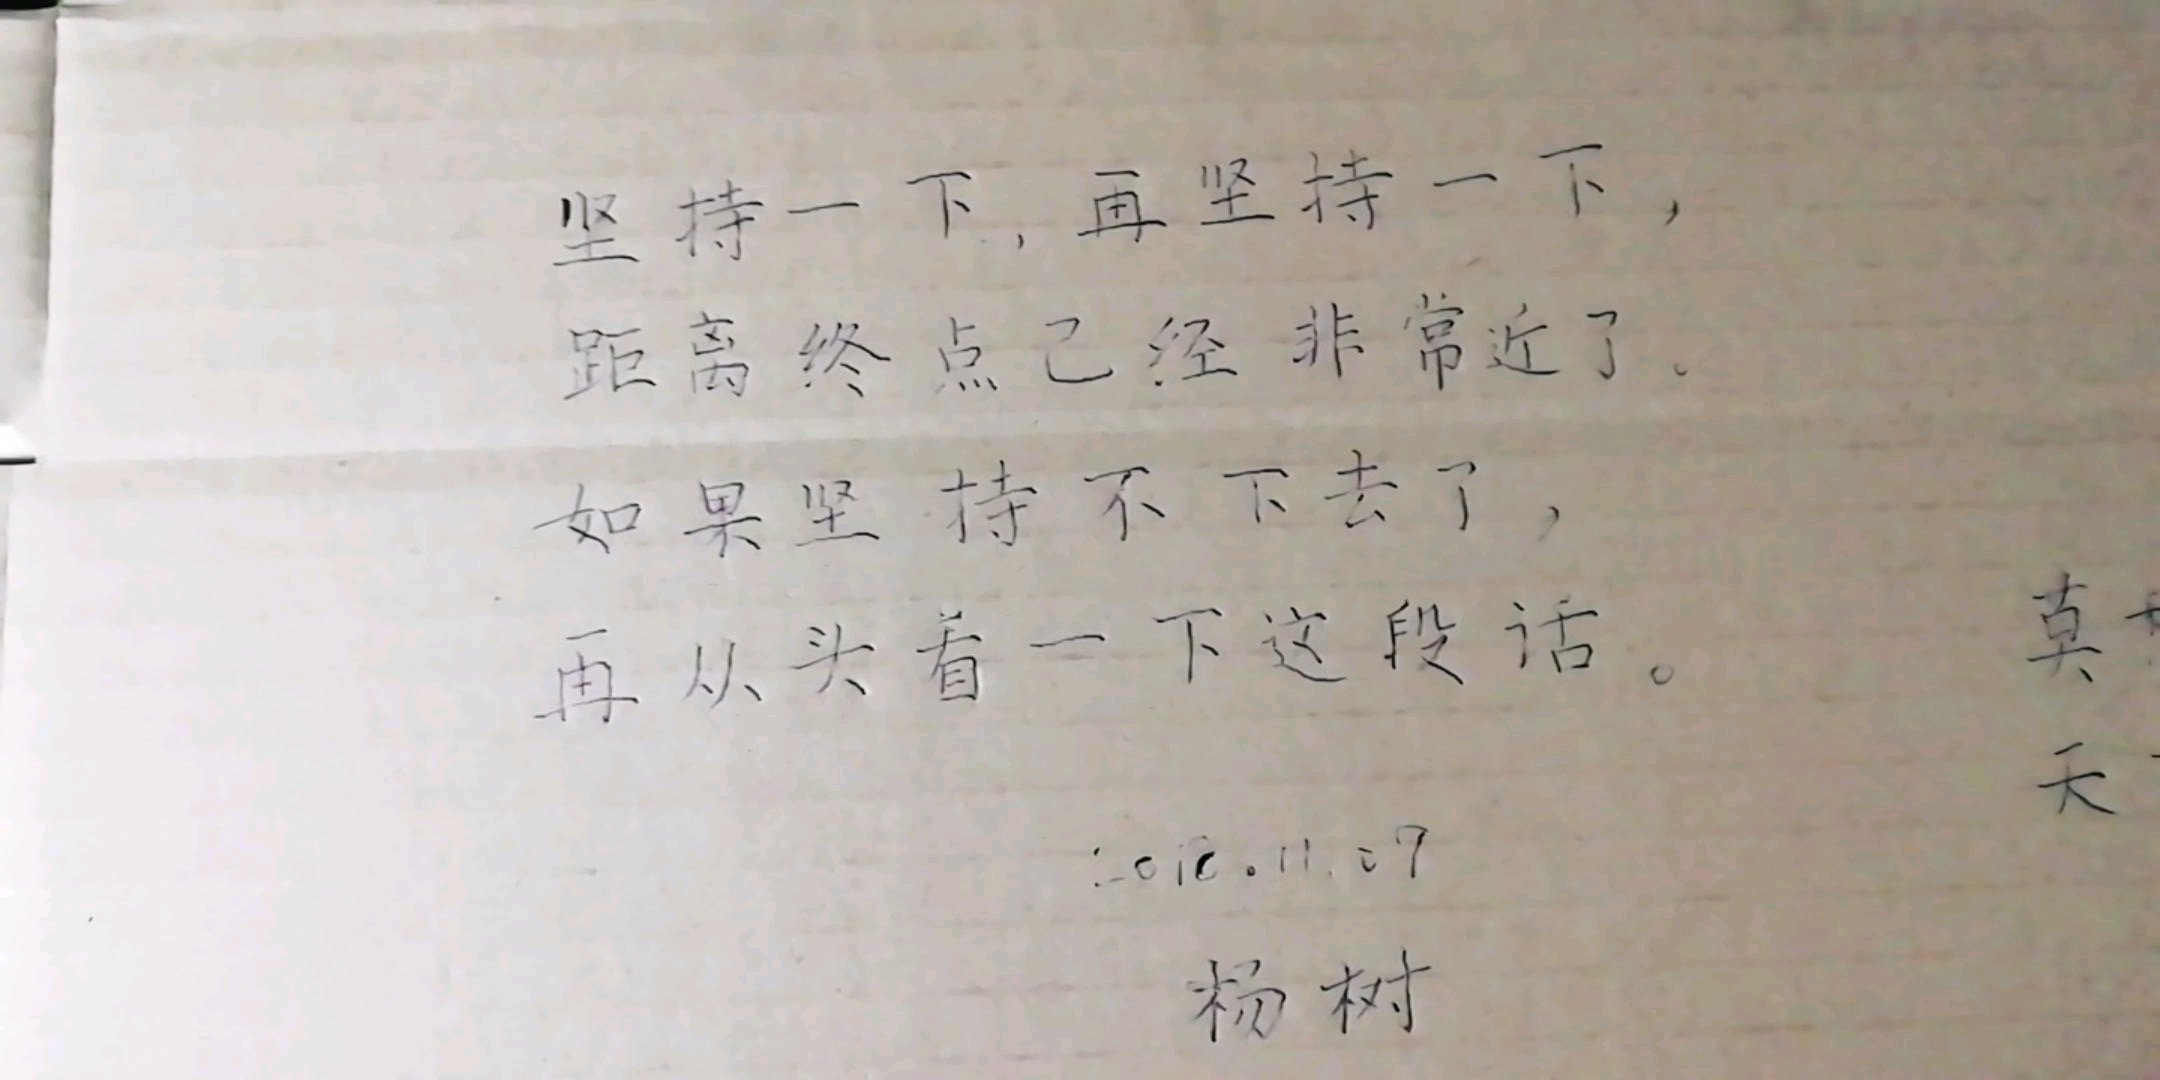 坚持一下,再坚持一下,
距离终点已经非常近了。
如果坚持不下去了,
再从头看一下这段话。
杨树
莫
天